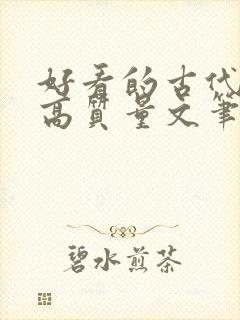 好看的古代
高质量文笔
碧水煎茶